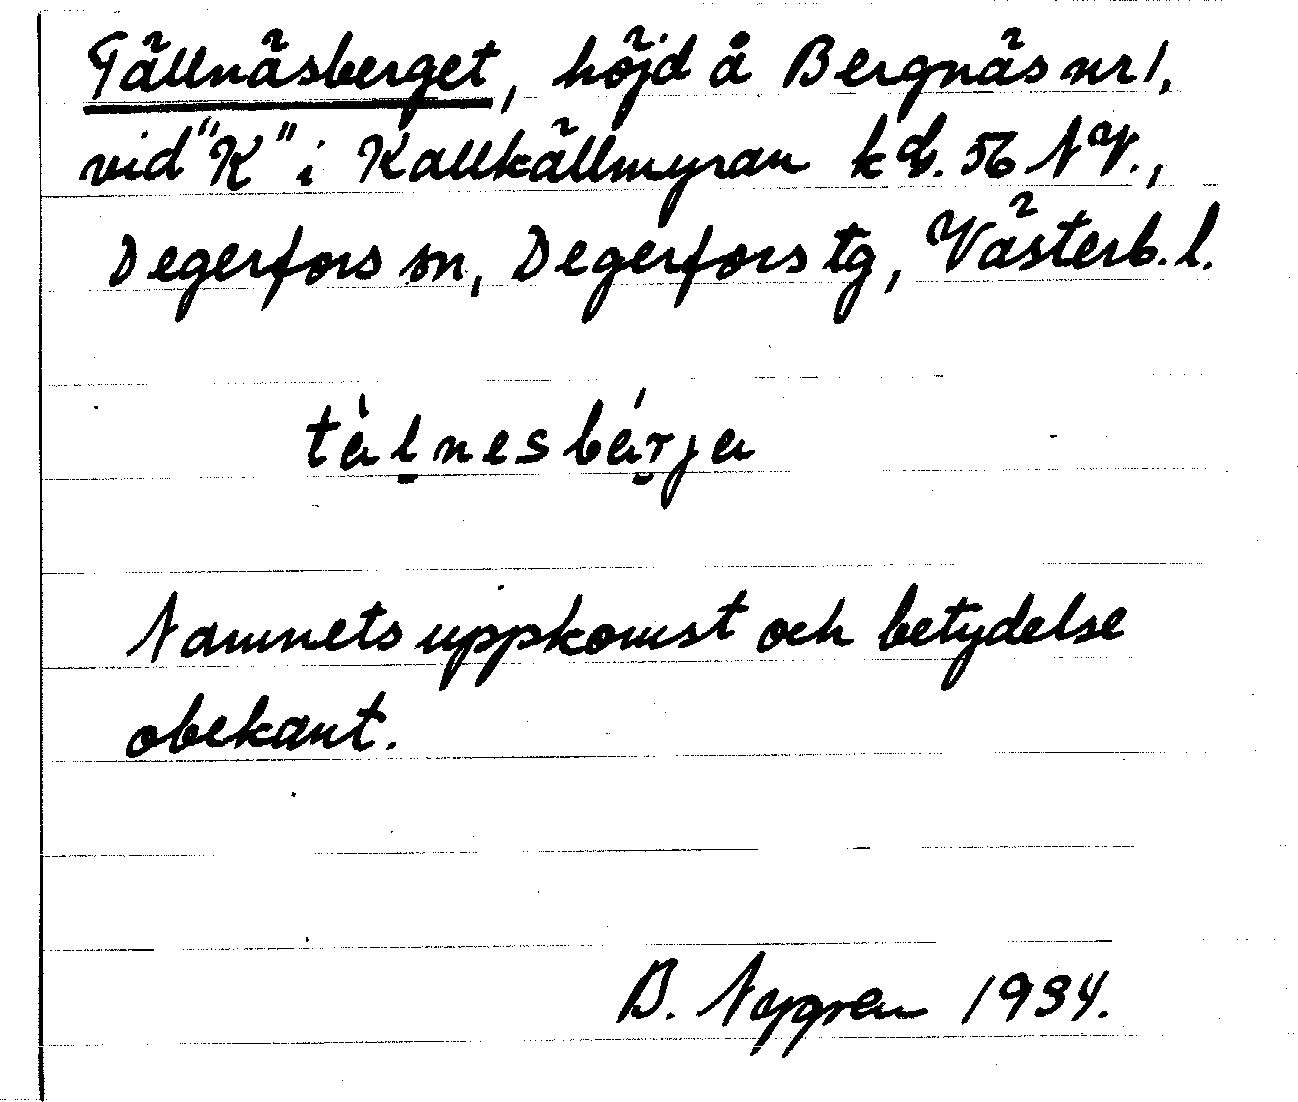 Tällnäsberget, höjd å Bergnäs nr 1,
vid "K" i Kallkällmyran kbl. 56 NV.,
Degerfors sn, Degerfors tg, Västerb. l.
tàḷnesbárja
Namnets uppkomst och betydelse
obekant.
B. Nygren 1934.